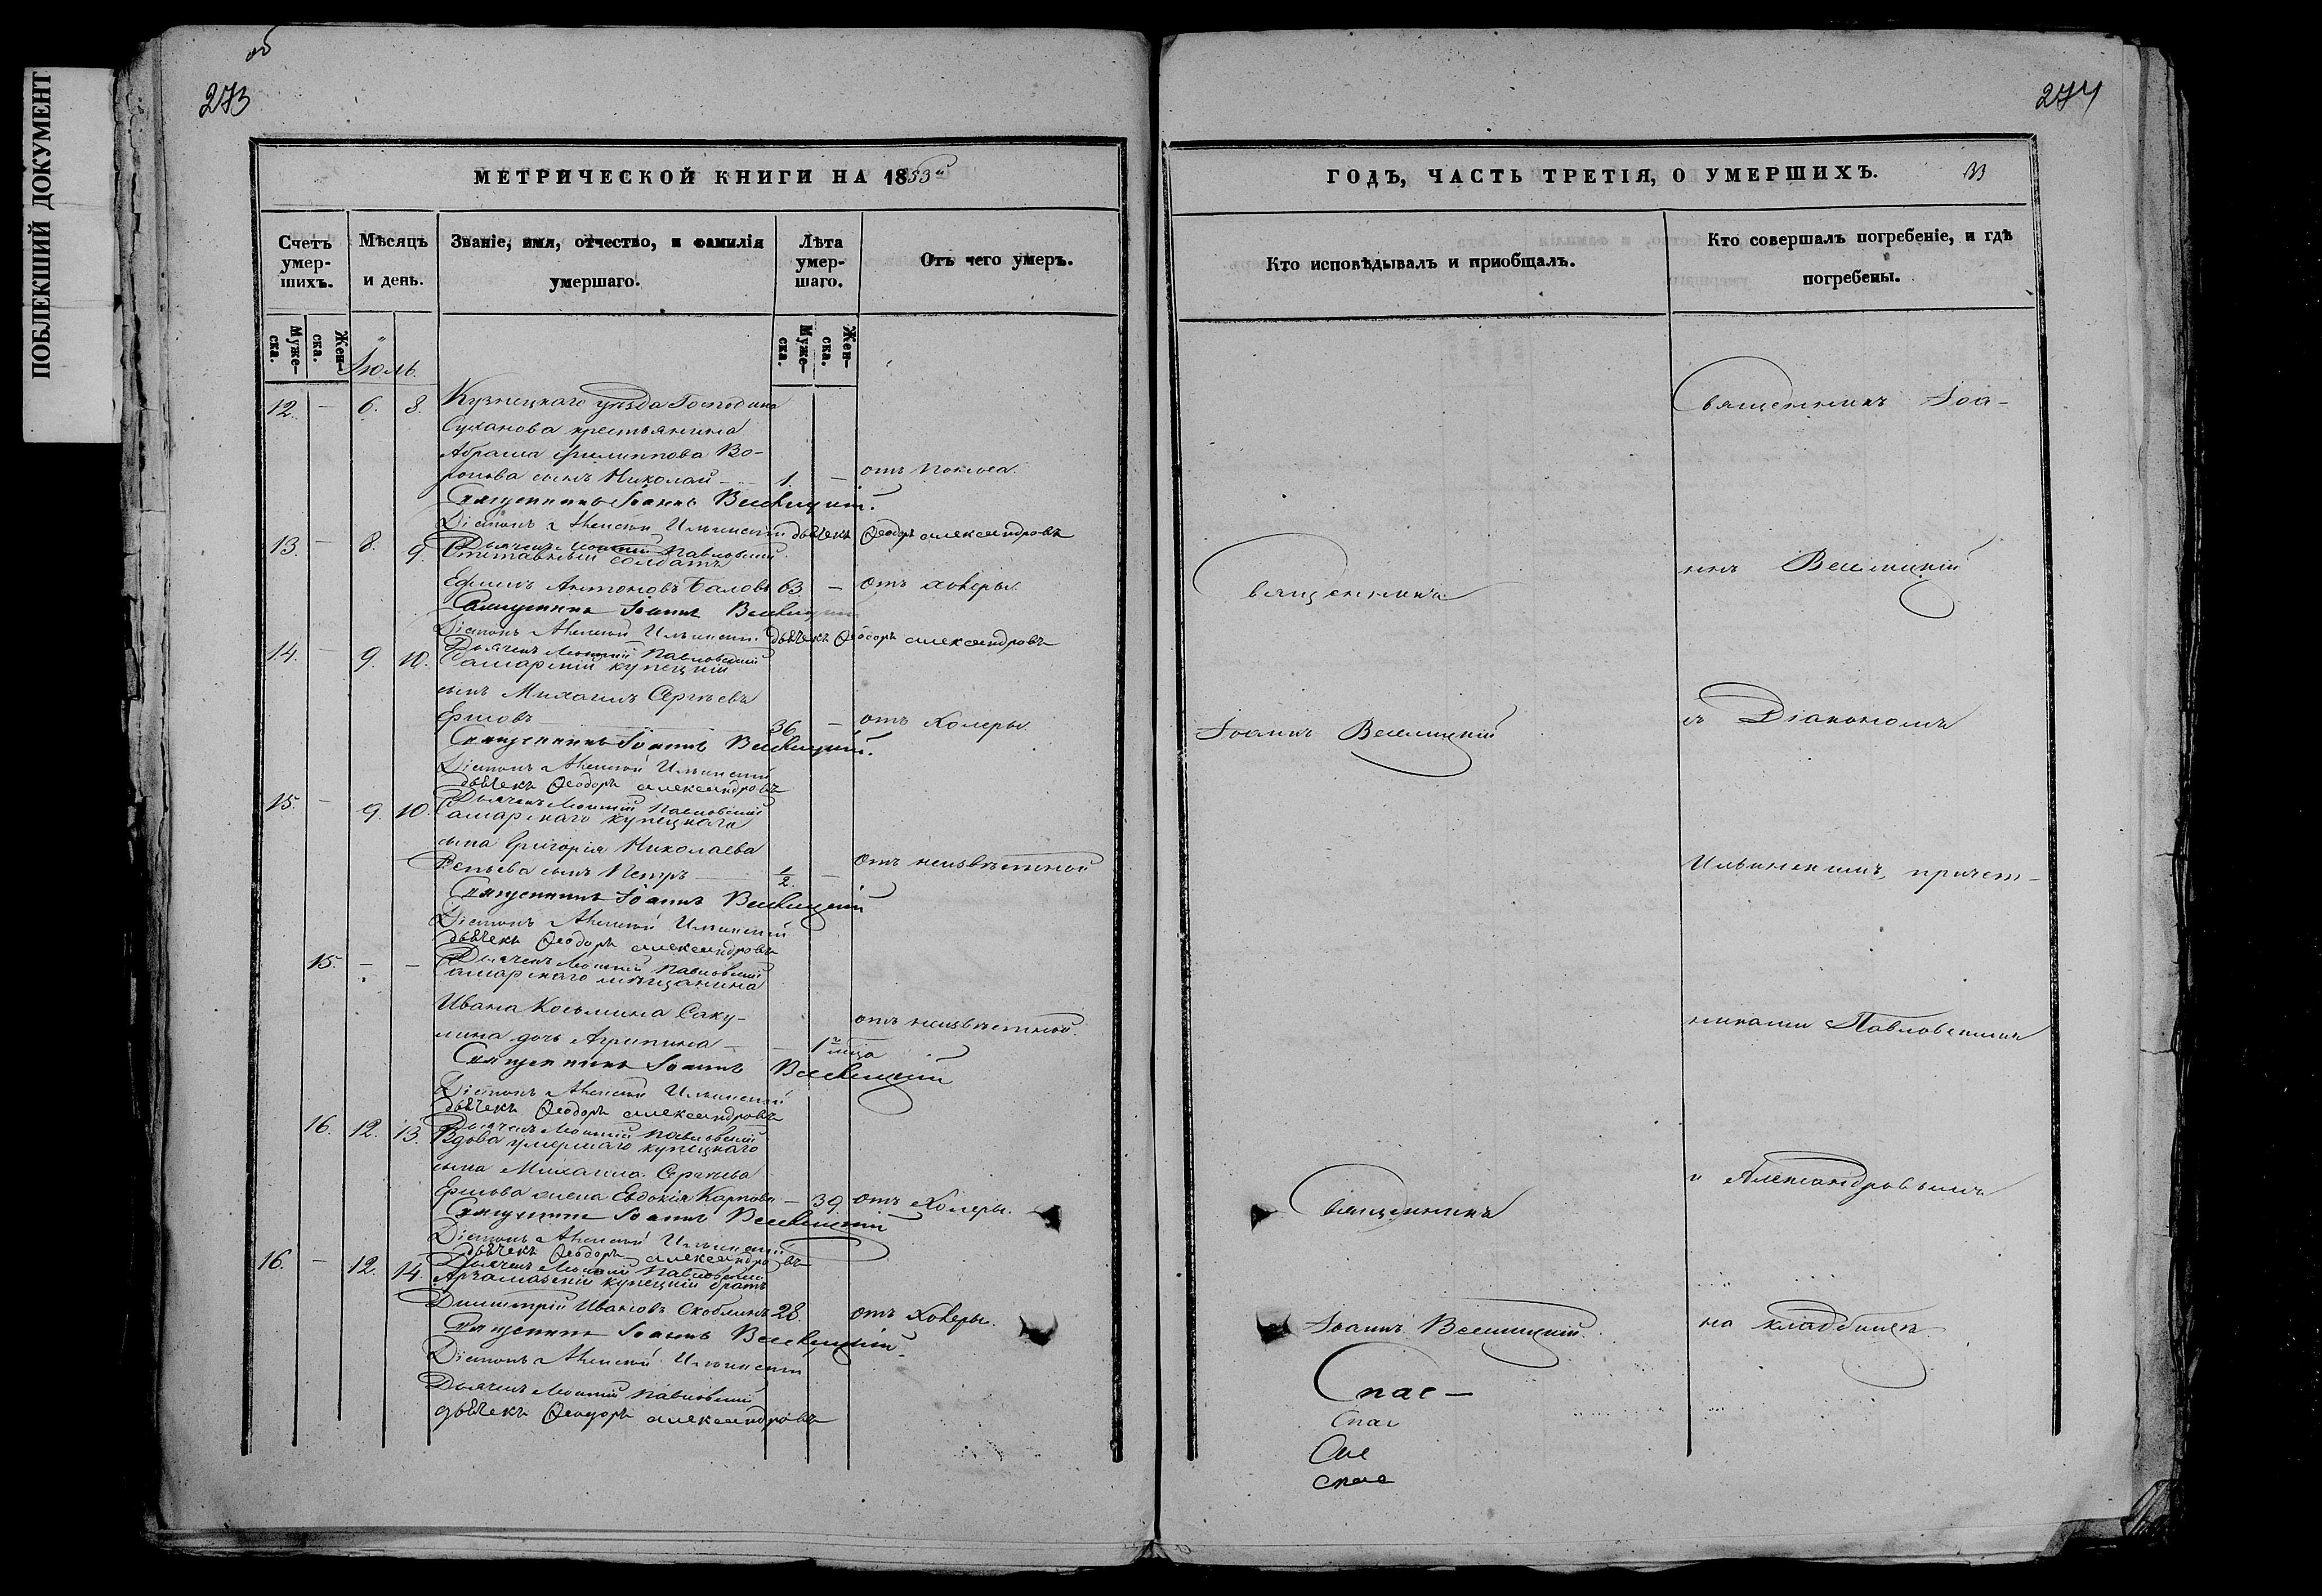 ПОБЛЕКШИЙ ДОКУМЕНТ
об
273
МЕТРИЧЕСКОЙ КНИГИ НА 1853й
Счетъ умер-шихъ.
Мѣсяцъ и день.
Званіе, имя, отчество, и фамилія умершаго.
Лѣта умер-шаго.
Отъ чего умеръ.
Муже-ска.
Жен-ска.
Муже-ска.
Жен-ска.
Іюль.
12. — 6. 8. Кузнецкаго уѣзда Господина
Суханова крестьянина
Абрама Филиппова Во-
ронова сынъ Николай — 1. — отъ поноса.
Священникъ Іоаннъ Веселицкій.
Діаконъ Алексѣй Ильинскій дьячекъ Ѳеодоръ Александровъ
Дьячекъ Павловскій
13. — 8. 9. Отставный солдатъ
Ефимъ Антоновъ Баловъ 63. — отъ холеры.
Священникъ Іоаннъ Веселицкій
Діаконъ Алексѣй Ильинскій дьячекъ Ѳеодоръ Александровъ
Дьячекъ Павловскій
14. — 9. 10. Самарскій купецкій
сынъ Михаилъ Сергѣевъ
Ершовъ — 36 — отъ холеры.
Священникъ Іоаннъ Веселицкій.
Діаконъ Алексѣй Ильинскій
дьячекъ Ѳеодоръ Александровъ
Дьячекъ Павловскій
15. — 9. 10. Самарскаго купецкаго
сына Григорія Николаева
сынъ Петръ — 1/2. — отъ неизвѣстной
Священникъ Іоаннъ Веселицкій
Діаконъ Алексѣй Ильинскій
дьячекъ Ѳеодоръ Александровъ
Дьячекъ Павловскій
15. — — Самарскаго мѣщанина
Ивана Косьмина Саку-
лина дочь Агрипина — — 1 м-ца отъ неизвѣстной.
Священникъ Іоаннъ Веселицкій
Діаконъ Алексѣй Ильинскій
дьячекъ Ѳеодоръ Александровъ
Дьячекъ Павловскій
16. 12. 13. Вдова умершаго купецкаго
сына Михаила Сергѣева
Ершова жена Евдокія Карпова — 39 отъ холеры.
Священникъ Іоаннъ Веселицкій
Діаконъ Алексѣй Ильинскій
дьячекъ Ѳеодоръ Александровъ
Дьячекъ Павловскій
16. — 12. 14. Арзамаскій купецкій братъ
Димитрій Ивановъ Скоблинъ 28. отъ холеры.
Священникъ Іоаннъ Веселицкій
Діаконъ Алексѣй Ильинскій
Дьячекъ Павловскій
дьячекъ Ѳеодоръ Александровъ
274
ГОДЪ, ЧАСТЬ ТРЕТІЯ, О УМЕРШИХЪ.
33
Кто исповѣдывалъ и приобщалъ.
Кто совершалъ погребеніе, и гдѣ погребены.
Священникъ
Іоаннъ Веселицкій
Священникъ
Іоаннъ Веселицкій.
Спас—
Спас
Спас
Священникъ Іоа-
ннъ Веселицкій
съ Діакономъ
Ильинскимъ, причет-
никами Павловскимъ
и Александровымъ
на кладбищѣ.